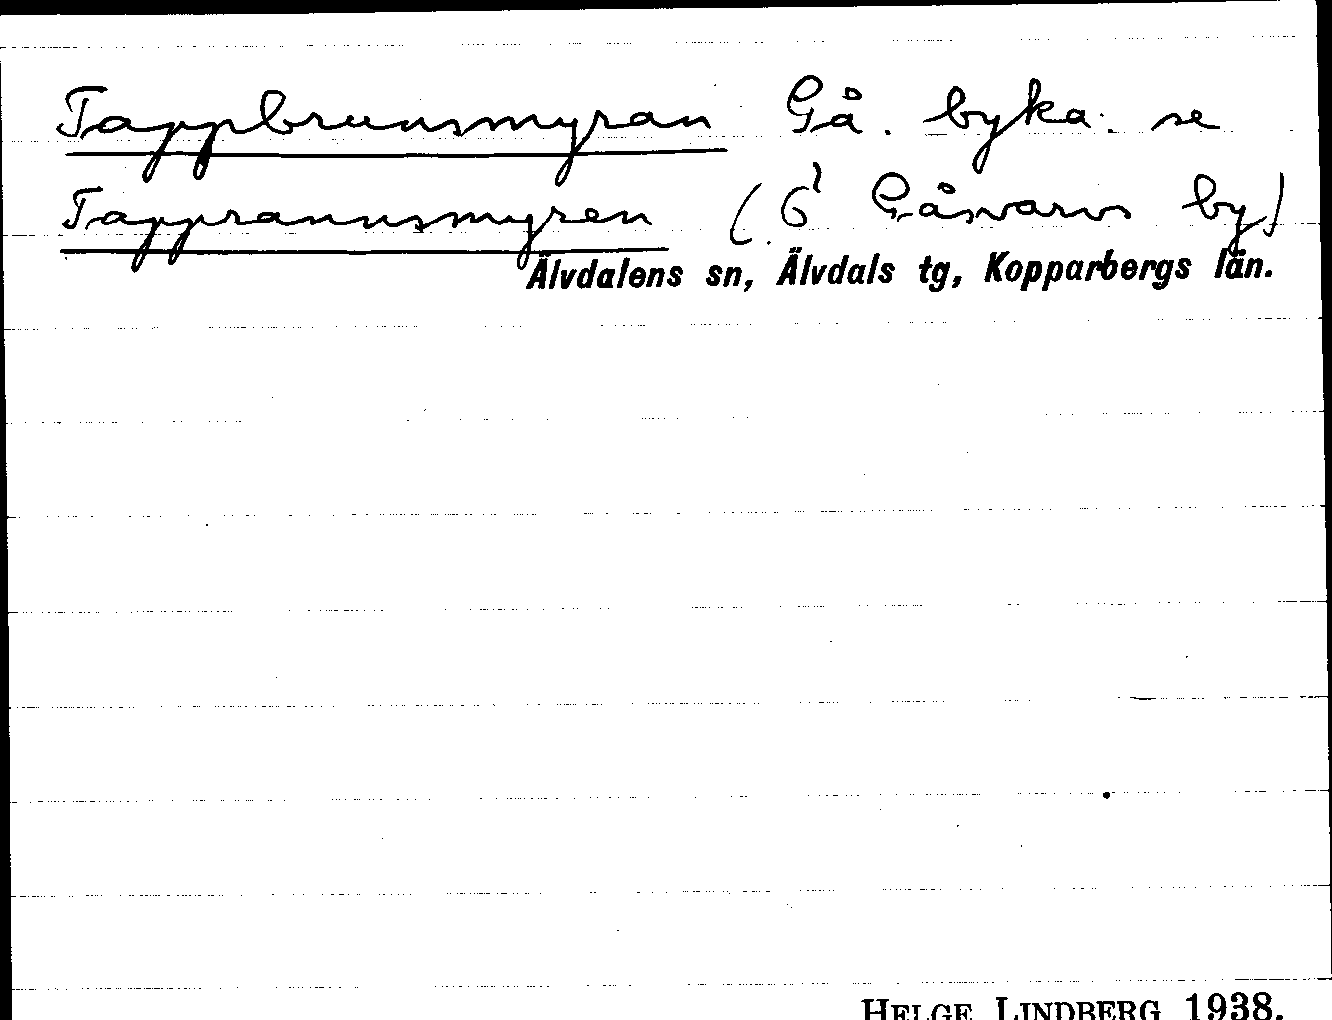 Tappbrunsmyran Gå. byka. se
Tapprannsmyren (6¹ Gåsvarvs by)
Älvdalens sn, Älvdals tg, Kopparbergs län.
HELGE LINDBERG 1938.